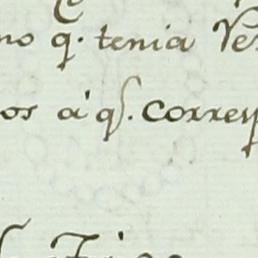 no q. tenia Ve
os a qs. corresp